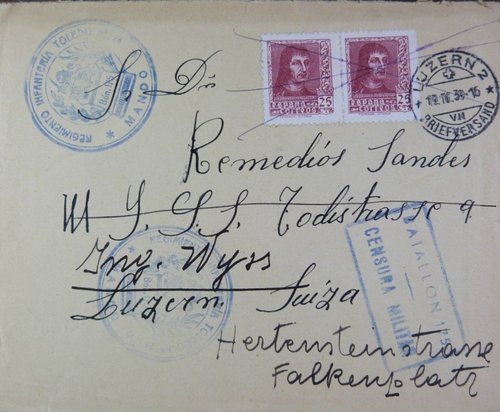 REGIMIENTO INFANTERIA TOLEDO
Bón. 175
MANDO
ESPAÑA
CORREOS
25
ESPAÑA
CORREOS
25
LUZERN 2
19.IV.38-16
VII
BRIEFVERSAND
S Dª
Remedios Sandes
Todistrasse 9
Ing. Wyss
Luzern Suiza
Hertensteinstrasse
Falkenplatz
BATALLON 175
CENSURA MILITAR
REGIMIE
TO